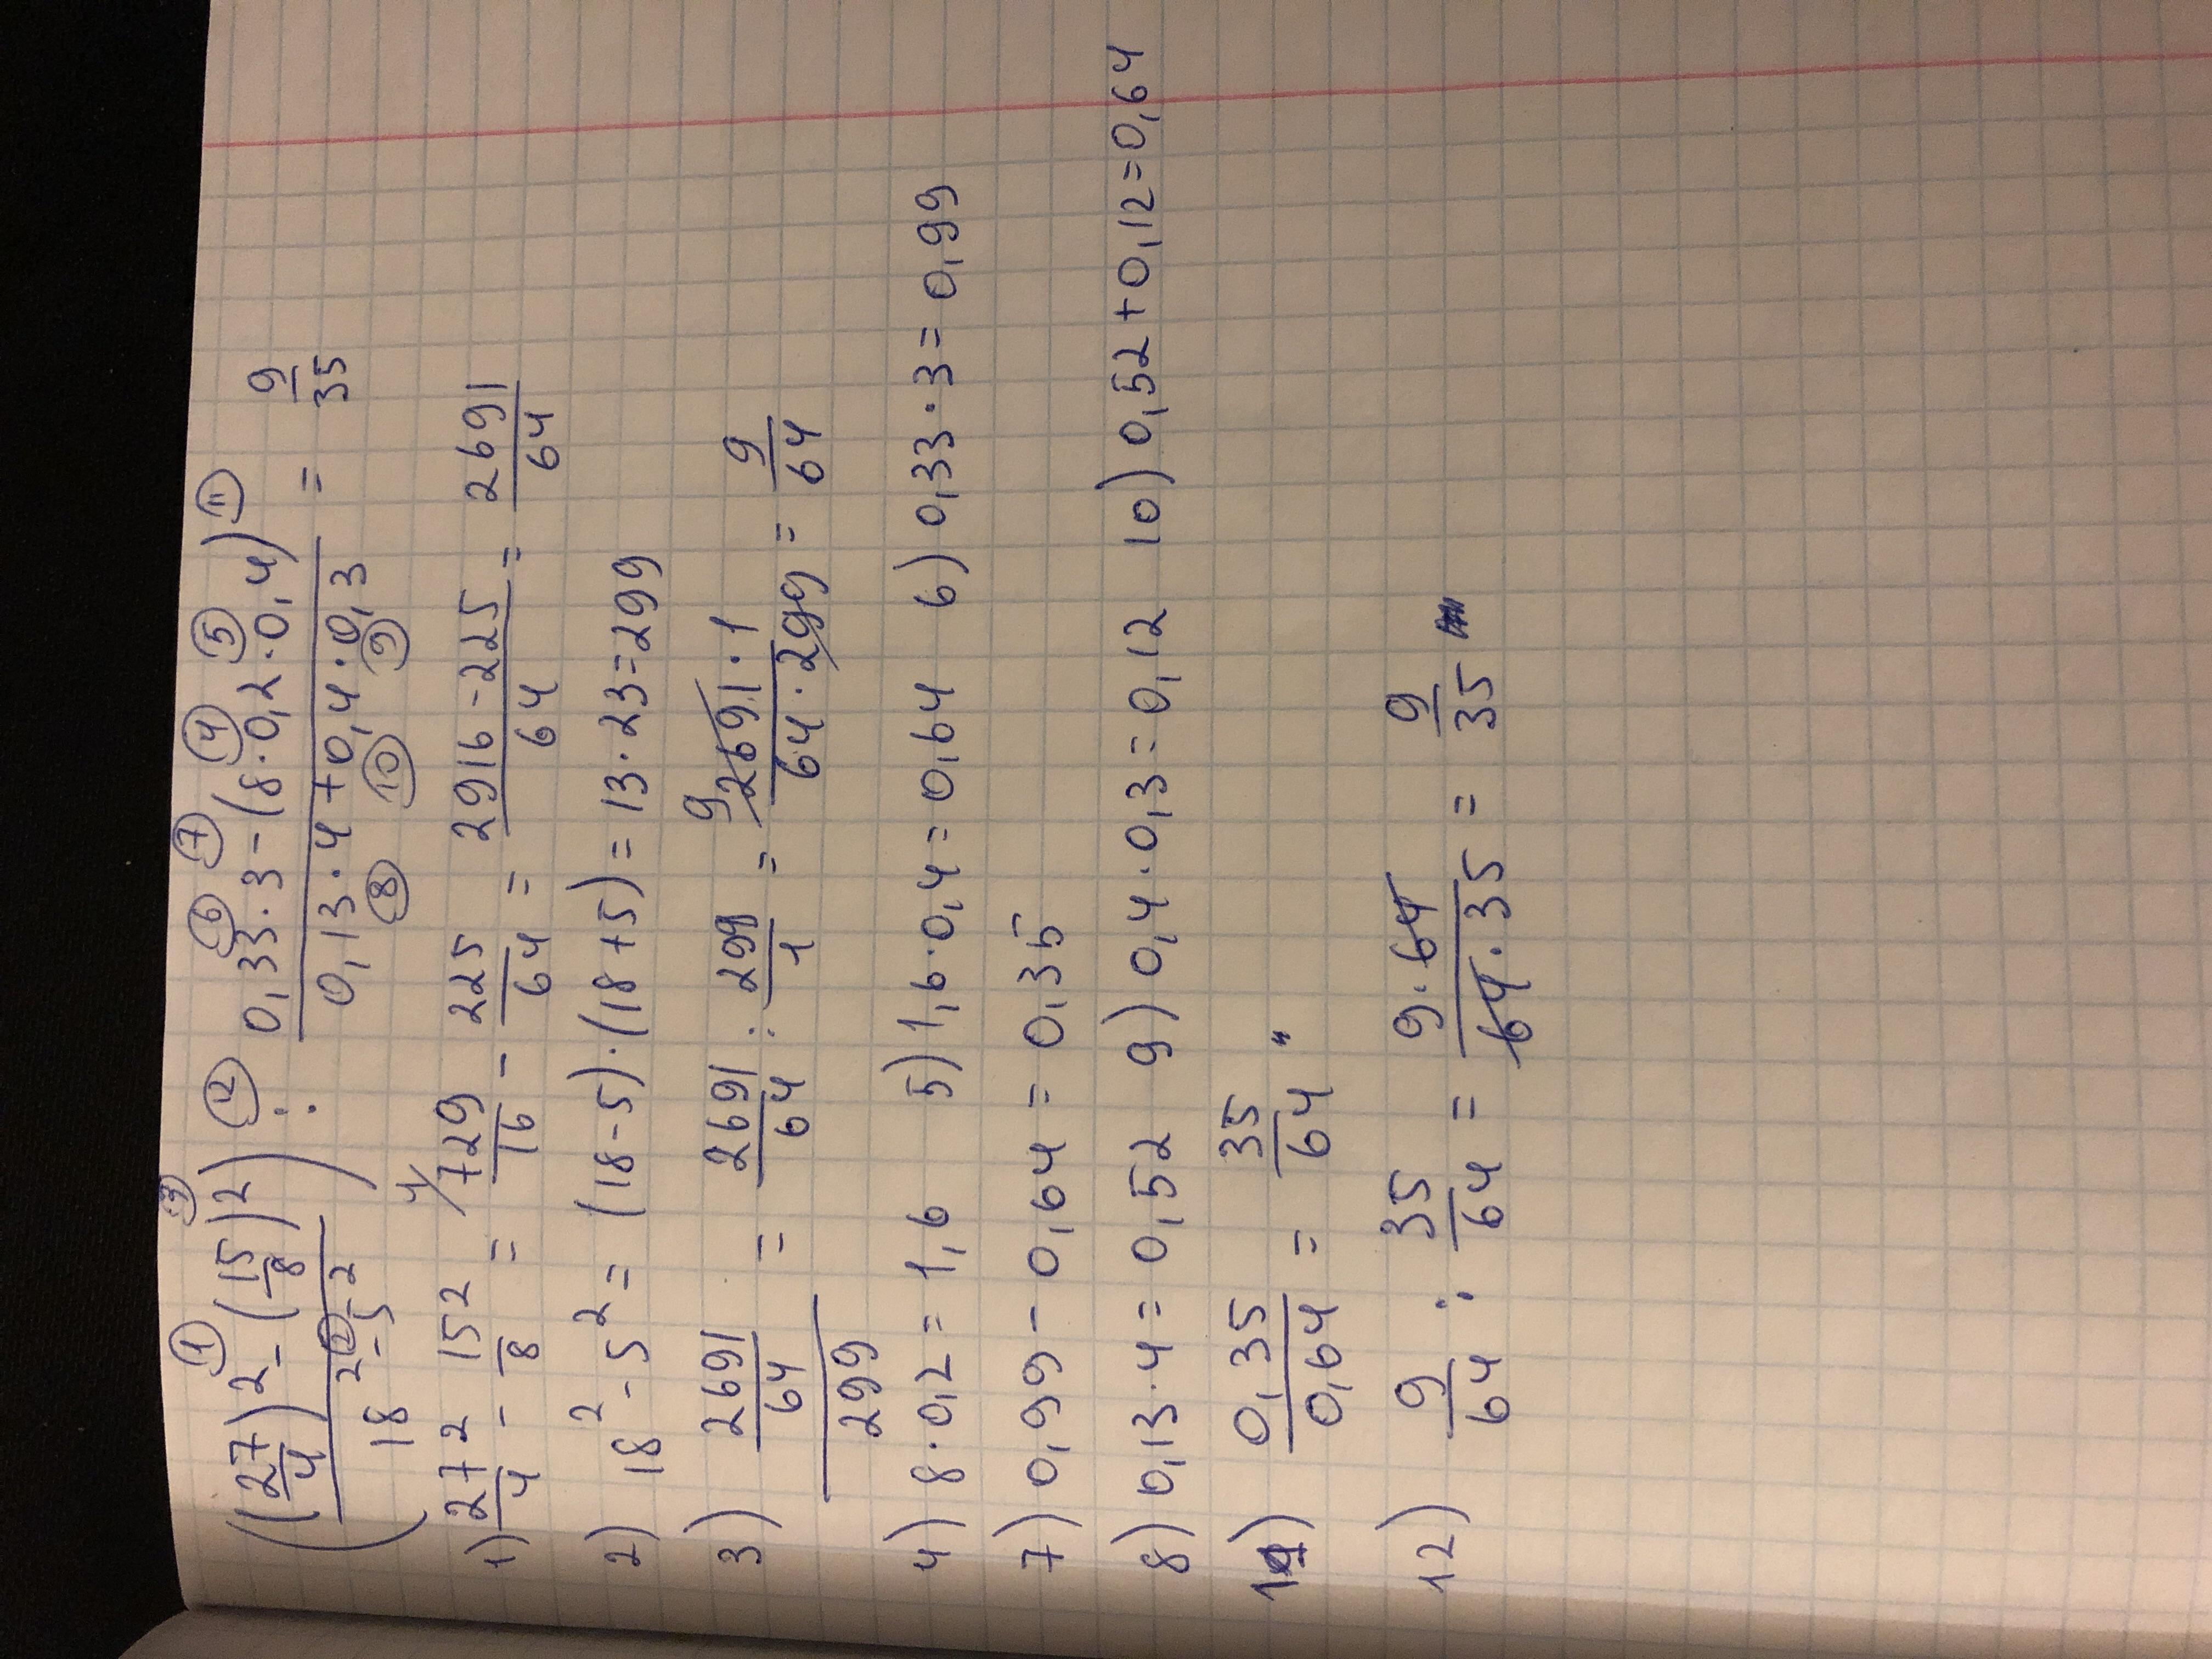 (((27/4)² - (15/8)²) / (18² - 5²)) : (0,33 · 3 - (8 · 0,2 · 0,4)) / (0,13 · 4 + 0,4 · 0,3) = 9/35
1) 27²/4 - 15²/8 = 4/ 729/16 - 225/64 = (2916 - 225)/64 = 2691/64
2) 18² - 5² = (18 - 5) · (18 + 5) = 13 · 23 = 299
3) 2691/64 / 299 = 2691/64 : 299/1 = 9 2691 · 1 / 64 · 299 = 9/64
4) 8 · 0,2 = 1,6 5) 1,6 · 0,4 = 0,64 6) 0,33 · 3 = 0,99
7) 0,99 - 0,64 = 0,35
8) 0,13 · 4 = 0,52 9) 0,4 · 0,13 = 0,12 10) 0,52 + 0,12 = 0,64
11) 0,35/0,64 = 35/64
12) 9/64 : 35/64 = 9 · 64 / 64 · 35 = 9/35